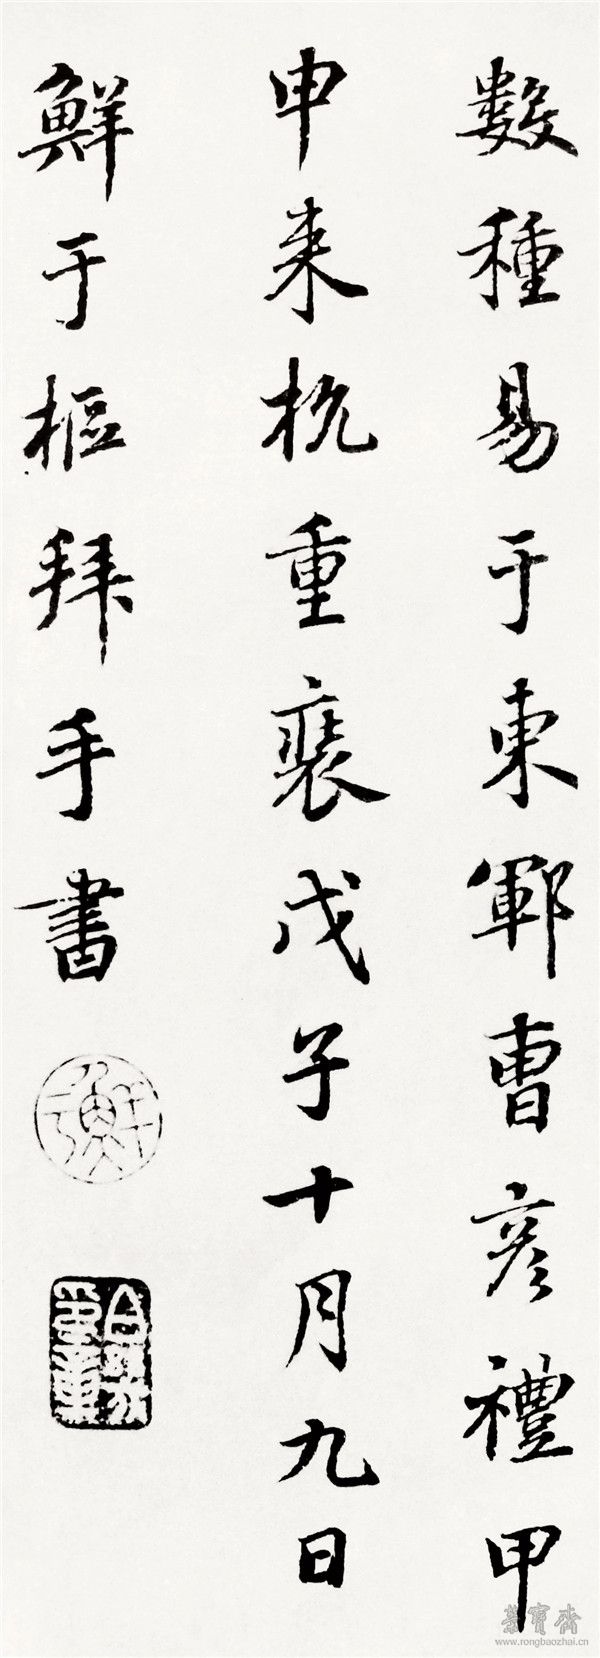 數種易于東鄆曹彥禮甲
申来杭重裝戊子十月九日
鮮于樞拜手書
鮮于
榮寳齋
www.rongbaozhai.cn